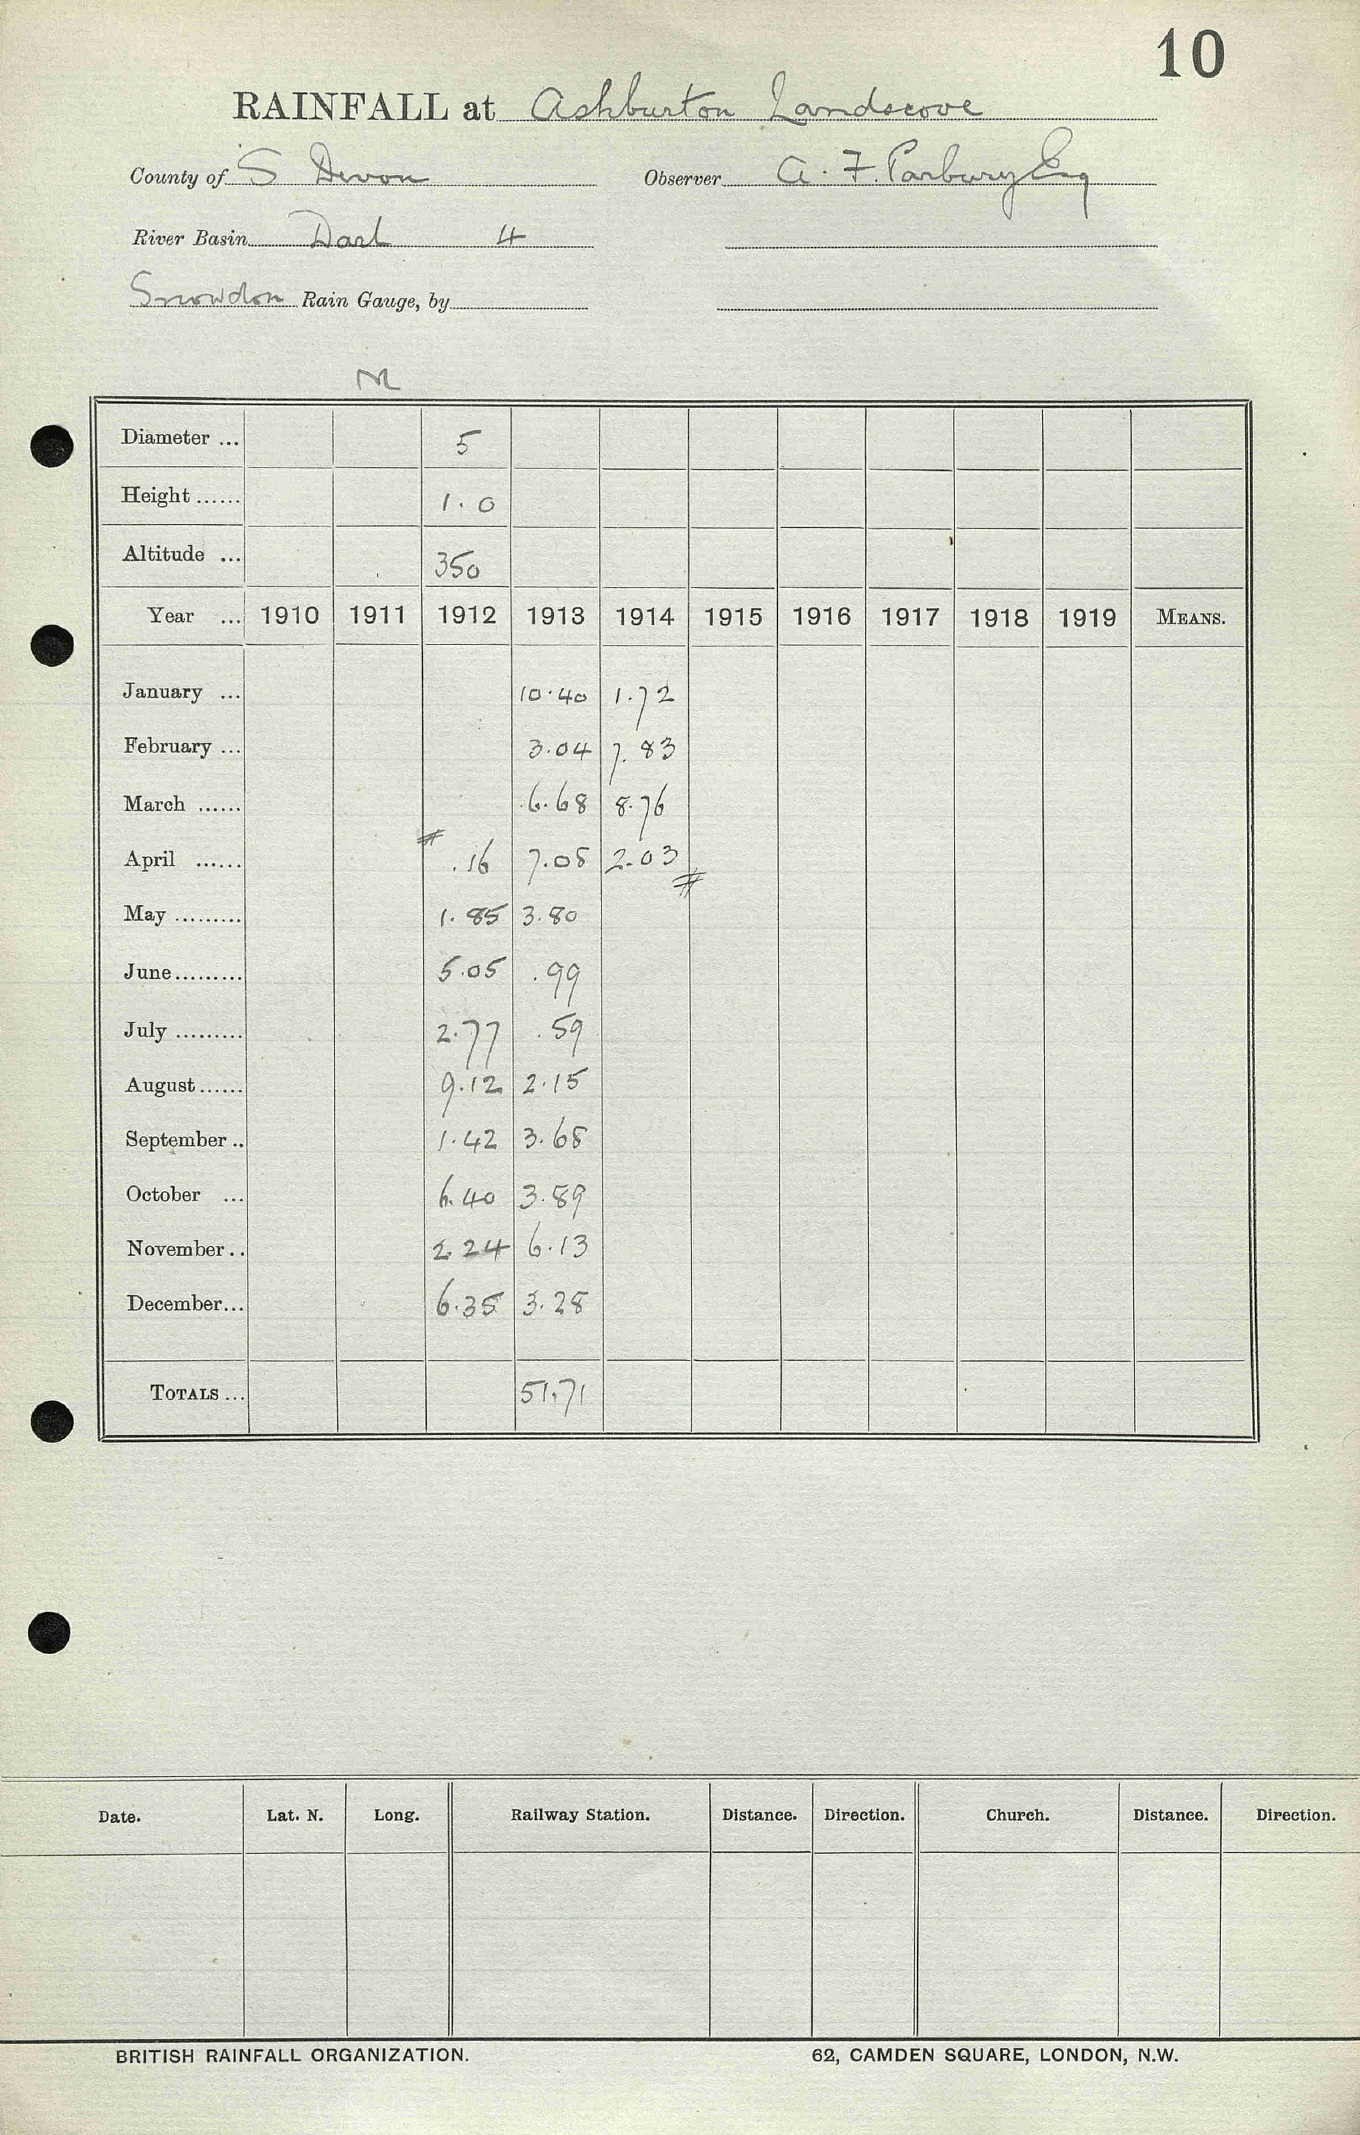 10
RAINFALL at Ashburton Landscove
County of S Devon Observer A. F. Parbury Esq
River Basin Dart 4
Snowdon Rain Gauge, by
M
Diameter ... 5
Height ...... 1.0
Altitude ... 350
Year ... 1910 1911 1912 1913 1914 1915 1916 1917 1918 1919 MEANS.
January ... 10.40 1.72
February ... 3.04 7.83
March ...... 6.68 8.76
April ...... # .16 7.08 2.03 #
May ......... 1.85 3.80
June......... 5.05 .99
July ......... 2.77 .59
August...... 9.12 2.15
September .. 1.42 3.68
October ... 6.40 3.89
November .. 2.24 6.13
December... 6.35 3.28
TOTALS ... 51.71
Date. Lat. N. Long. Railway Station. Distance. Direction. Church. Distance. Direction.
BRITISH RAINFALL ORGANIZATION. 62, CAMDEN SQUARE, LONDON, N.W.